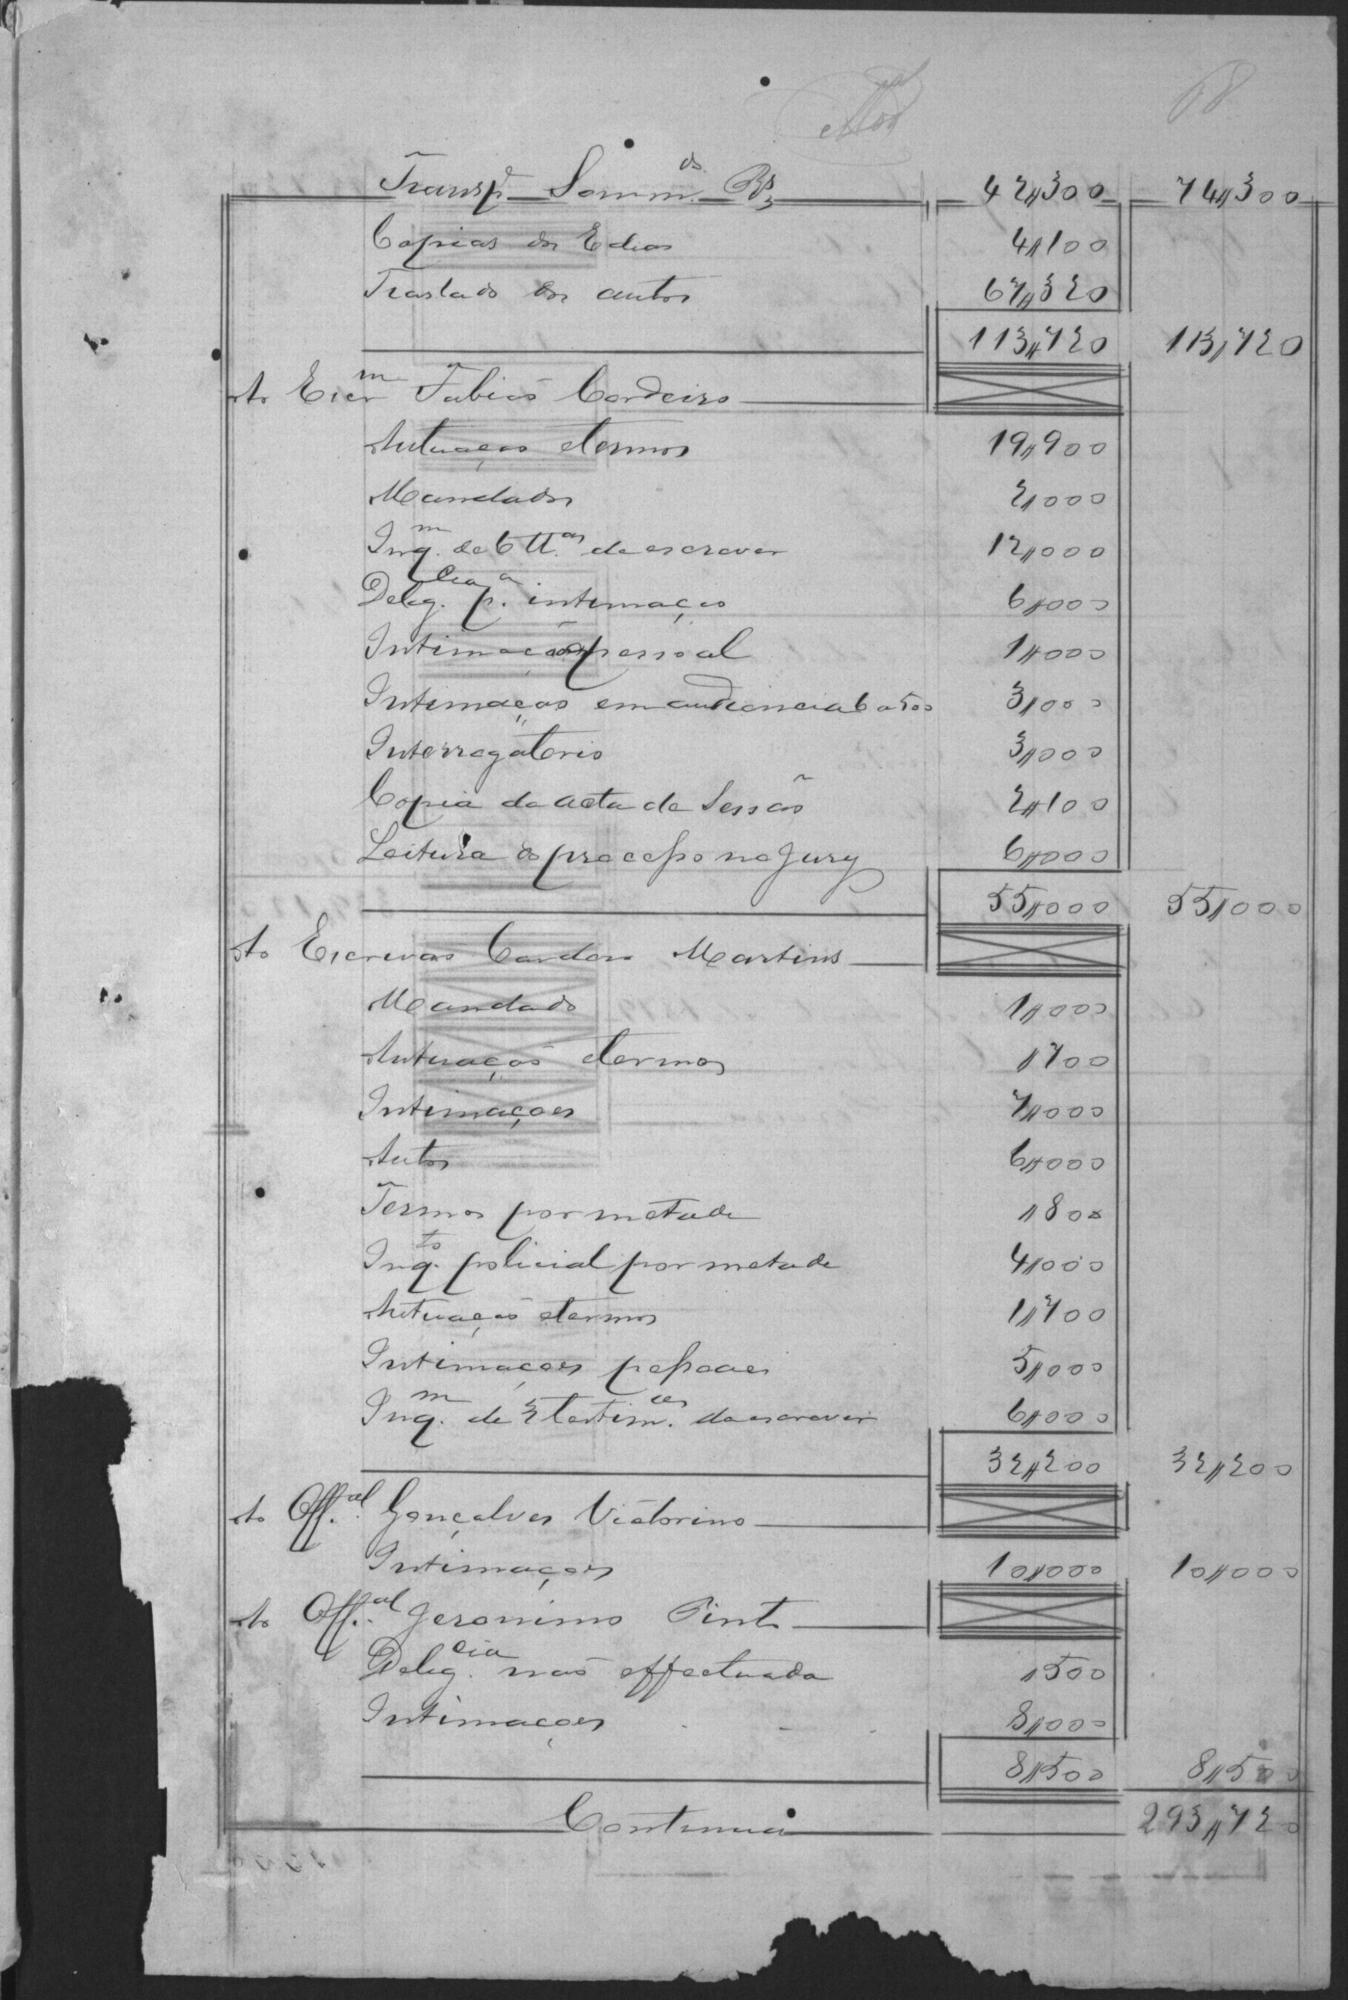 Transp.e Somm.ds Rs 42,,300 74,,300
Copias dos Edias 4,,100
Traslado dos autos 67,,320
113,,720 113,,720
Ao Escrm Tabião Cordeiro
Autuação etermos 19,,900
Mandados 2,000
Inq.m de 6 tt.as de escrever 12,,000
Delig.cia p.a intimação 6,,000
Intimação pessoal 1,,000
Intimação em audiencia 6 a 500 3,000
Interrogatorio 3,,000
Copia da acta da Sessão 2,,100
Leitura do processo no Jury 6,,000
55,,000 55,,000
Ao Escrivão Cardoso Martins
Mandado 1,,000
Autuação etermos 1700
Intimações 7,,000
Autos 6,,000
Termos por metade 1800
Inq.to policial por metade 4,000
Autuação etermos 1,,700
Intimações pessoaes 5,,000
Inq.m de 3 testim.as de escrever 6,,000
32,,200 32,,200
Ao Off.al Gonçalves Victorino
Intimações 10,,000 10,,000
Ao Off.al Jeronimo Pinto
Delig.cia não effectuada 1500
Intimações 8,,000
8,,500 8,,500
Continua 293,,720